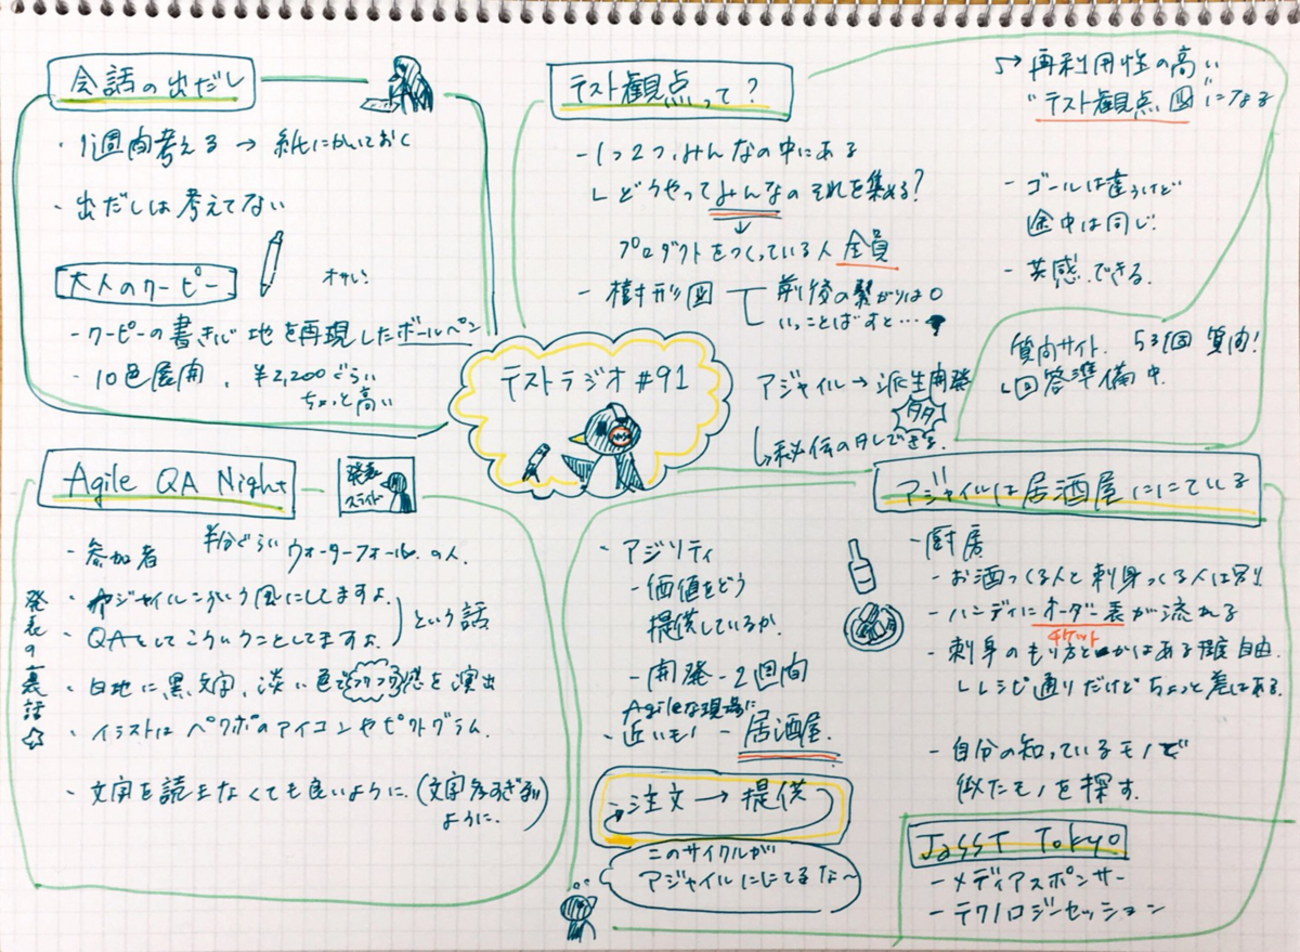 テストラジオ #91
会話の出だし
・1週間考える → 紙にかいておく
・出だしは考えてない
大人のクーピー
オサレ!
-クーピーの書き心地を再現したボールペン
-10色展開、¥2,200ぐらい
ちょっと高い
テスト観点って?
-1つ2つ、みんなの中にある
└どうやってみんなのそれを集める?
↓
プロダクトをつくっている人全員
-樹形図
前後の繋がりは○
いっことばすと…
→再利用性の高い
"テスト観点図"になる
-ゴールは違うけど
途中は同じ。
-共感できる。
アジャイル→派生開発
多々
↳秘伝のタレできる。
質問サイト 531回 質問!
└回答準備中
Agile QA Night
発表
スライド
発表の裏話☆
・参加者 半分ぐらいウォーターフォールの人。
・アジャイルこういう風にしてますよ。
・QAとしてこういうことしてますよ。
という話
・白地に黒文字、淡い色でフワフワ感を演出
・イラストはペクボのアイコンやピクトグラム。
・文字を読まなくても良いように。(文字多すぎない
ように。)
アジャイルは居酒屋ににている
・アジリティ
-価値をどう
提供しているか。
-開発-2週間
Agileな現場に
・近いモノ - 居酒屋。
注文→提供
このサイクルが
アジャイルににてるな〜
-厨房
-お酒つくる人と刺身つくる人は別
-ハンディにオーダー表が流れる
チケット
-刺身のもり方とかはある程度自由。
└レシピ通りだけどちょっと差はある。
-自分の知っているモノで
似たモノを探す。
JaSST Tokyo
-メディアスポンサー
-テクノロジーセッション